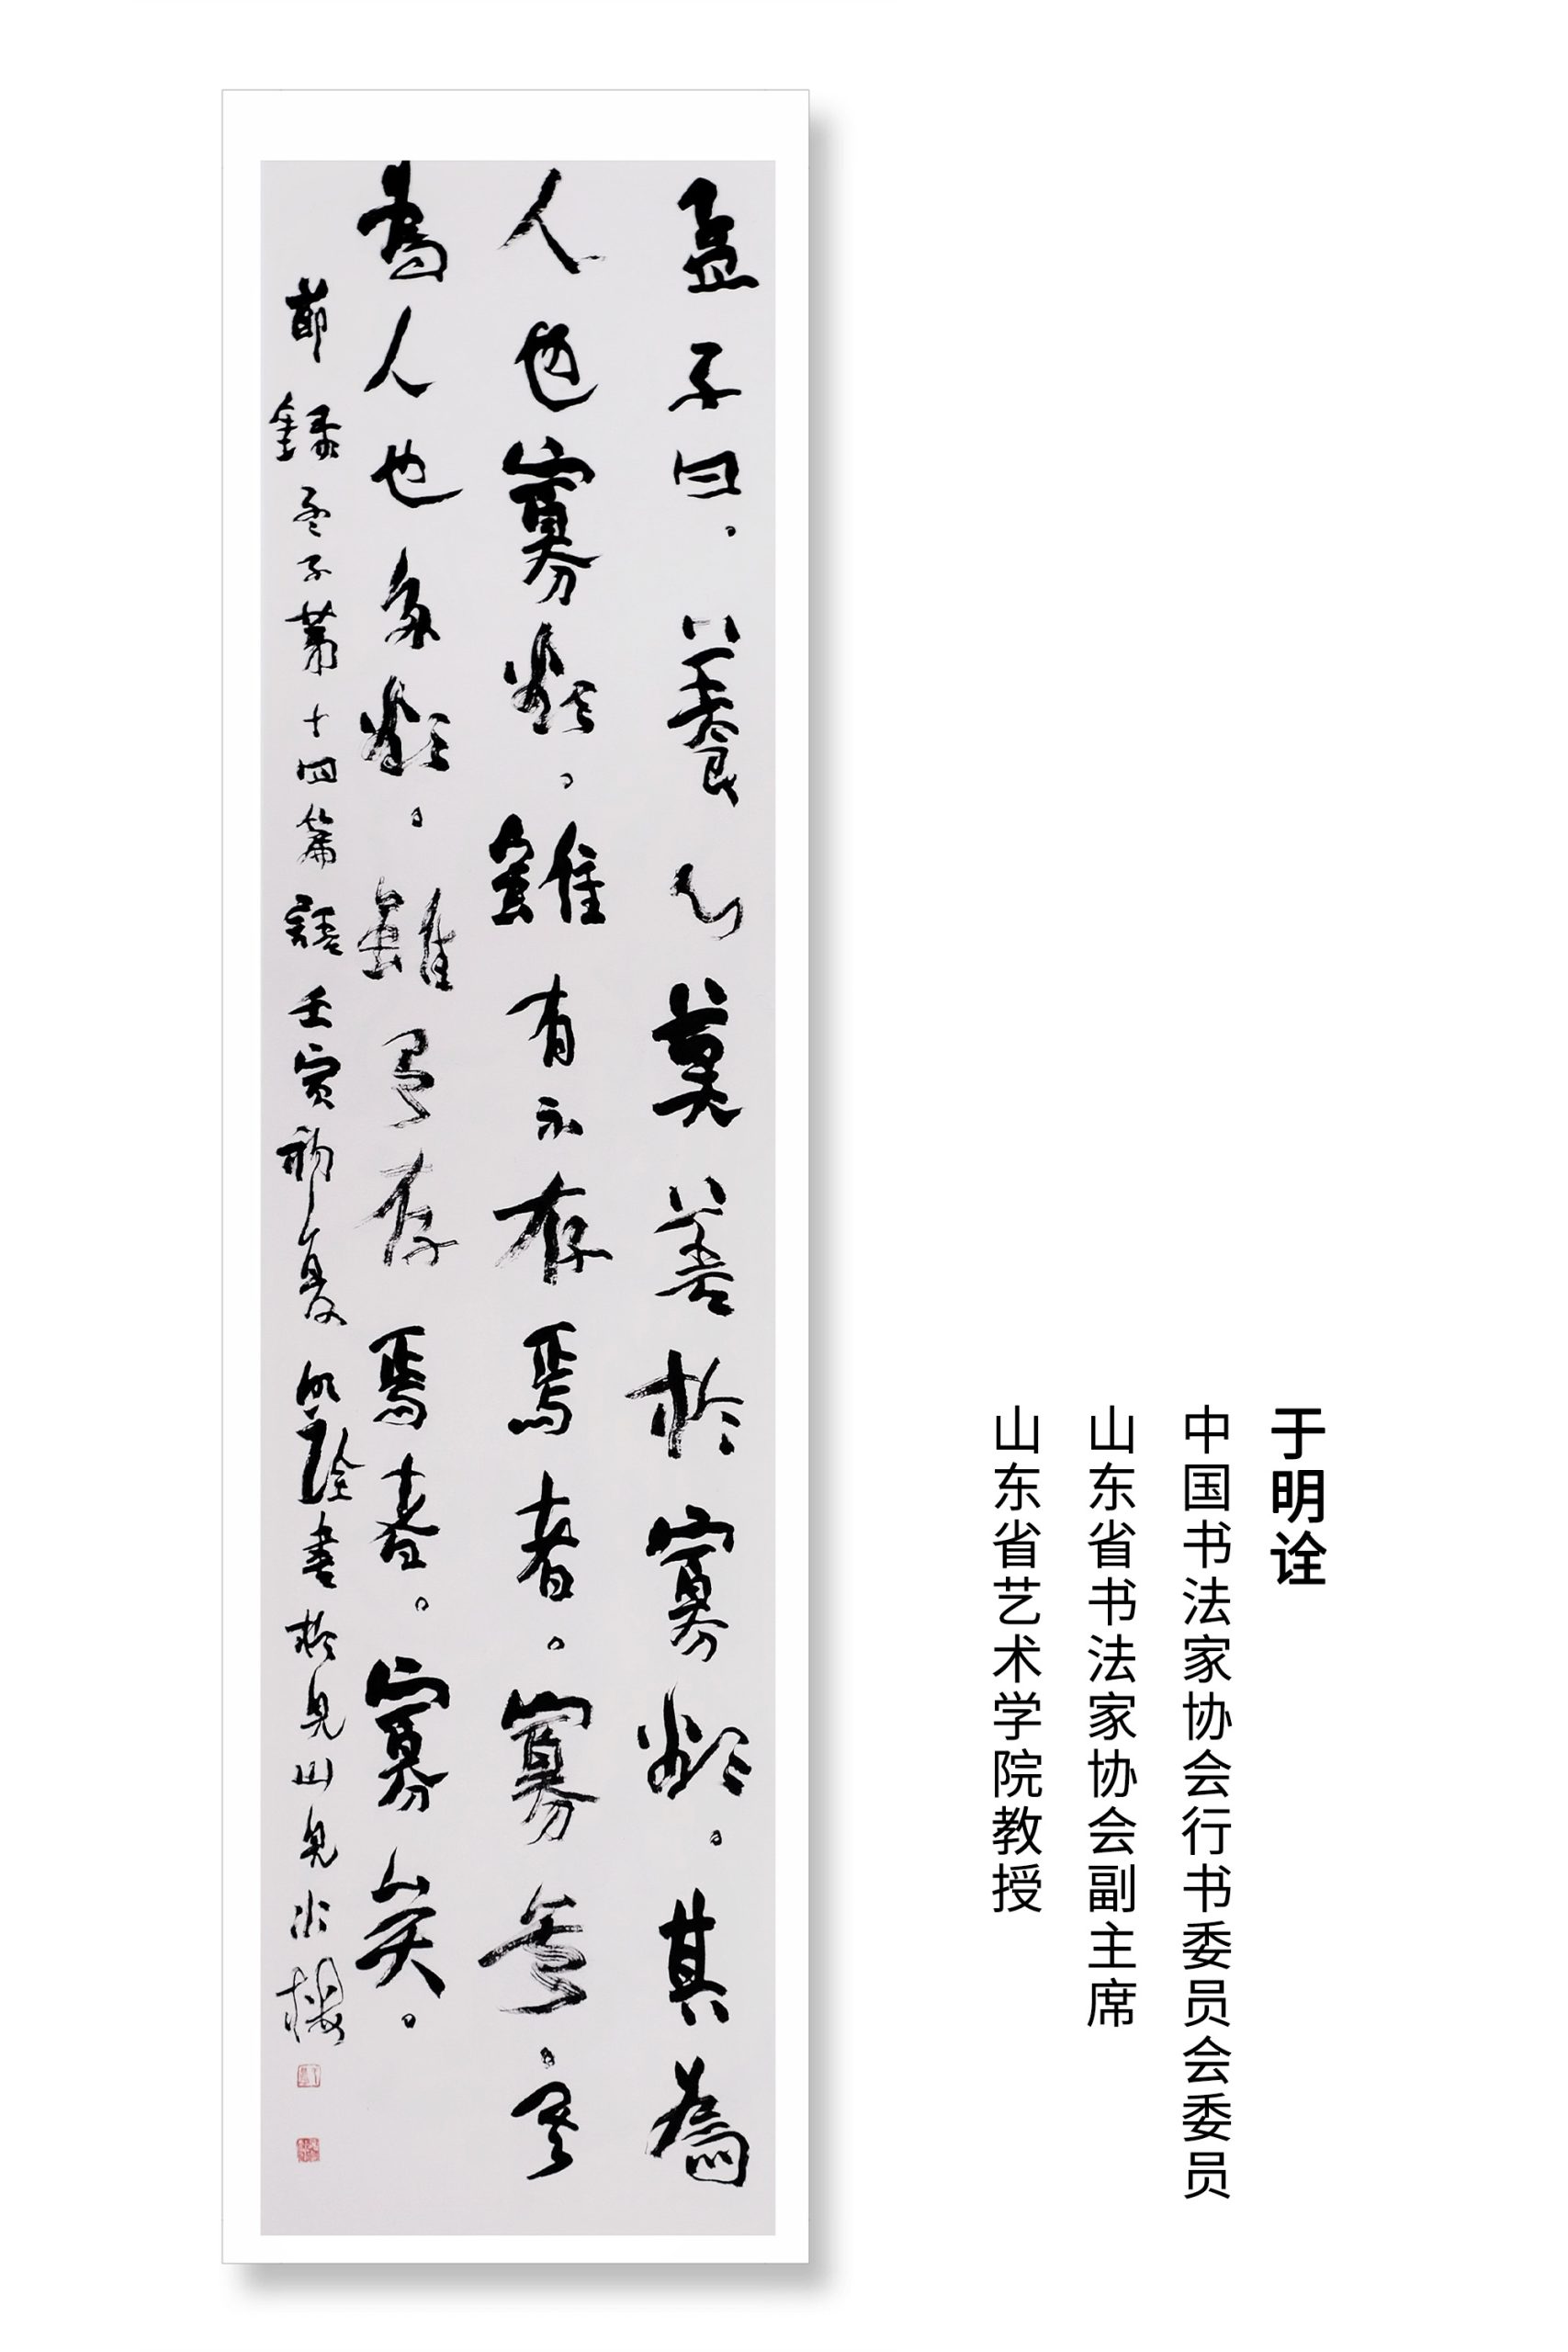 于明诠
中国书法家协会行书委员会委员
山东省书法家协会副主席
山东省艺术学院教授
孟子曰。養心莫善於寡欲。其為
人也寡欲。雖有不存焉者。寡矣。其
為人也多欲。雖有存焉者。寡矣。
節錄孟子第十四篇語壬寅初夏明詮書於見山見水樓